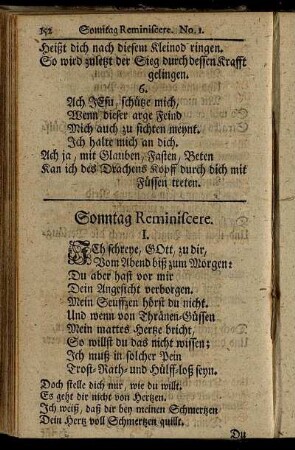 152 Sonntag Reminiscere. No. 1.
Heißt dich nach diesem Kleinod ringen.
So wird zuletzt der Sieg durch dessen Krafft
gelingen.
6.
Ach JEsu, schütze mich,
Wenn dieser arge Feind
Mich auch zu sichten meynt.
Ich halte mich an dich.
Ach ja, mit Glauben, Fasten, Beten
Kan ich des Drachens Kopff durch dich mit
Füssen treten.
Sonntag Reminiscere.
I.
ICh schreye, GOtt, zu dir,
Vom Abend biß zum Morgen:
Du aber hast vor mir
Dein Angesicht verborgen.
Mein Seuffzen hörst du nicht.
Und wenn von Thränen-Güssen
Mein mattes Hertze bricht,
So willst du das nicht wissen;
Ich muß in solcher Pein
Trost- Rath- und Hülff-loß seyn.
Doch stelle dich nur, wie du willt.
Es geht dir nicht von Hertzen.
Ich weiß, daß dir bey meinen Schmertzen
Dein Hertz voll Schmertzen quillt.
Du